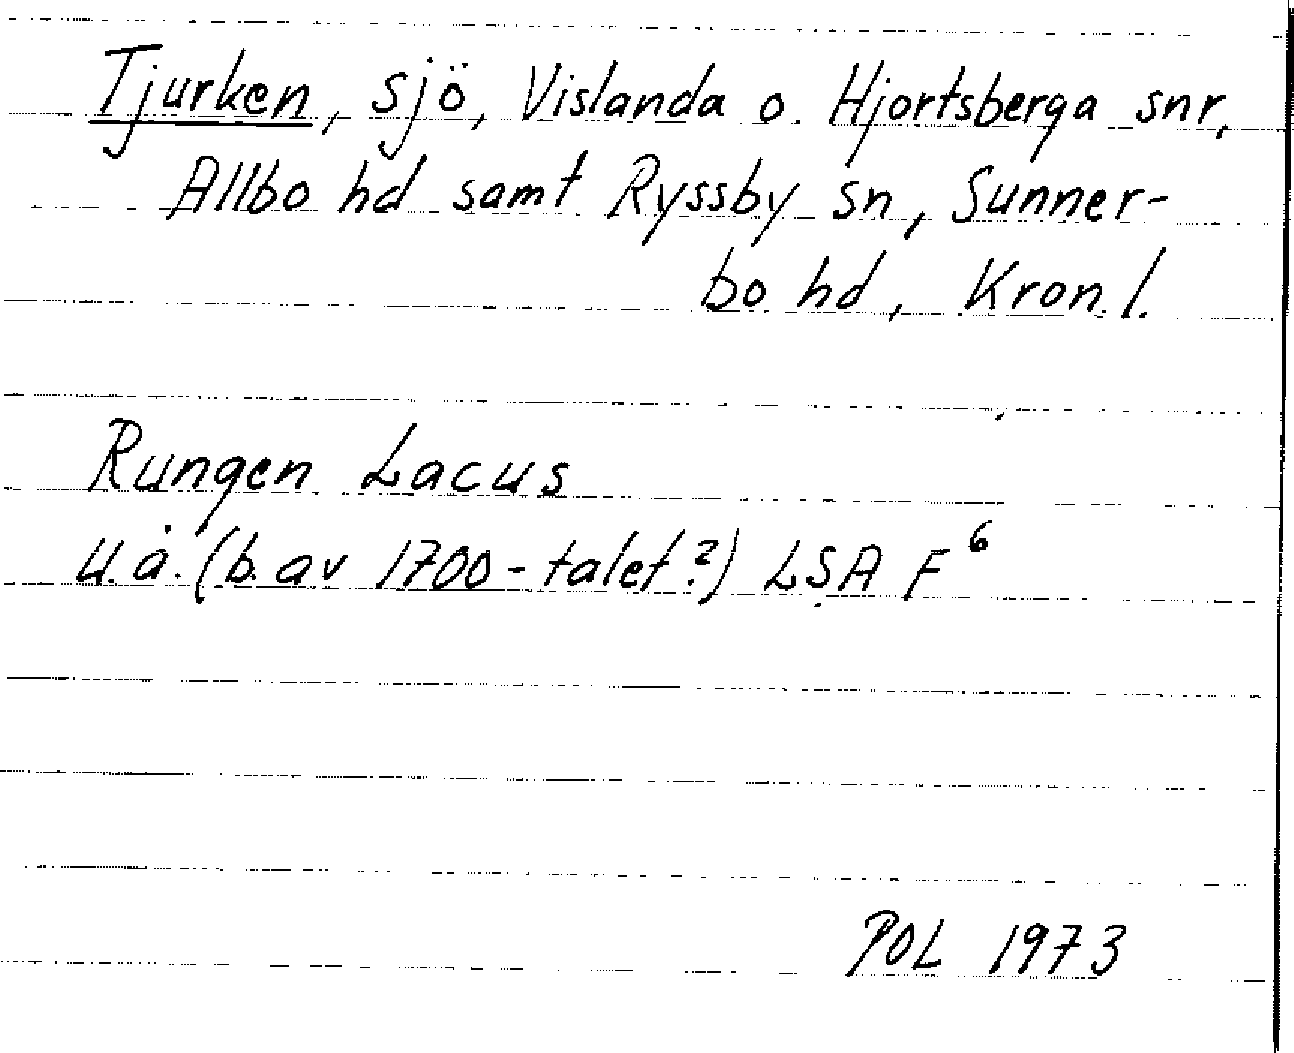 Tjurken, sjö, Vislanda o. Hjortsberga snr,
Allbo hd samt Ryssby sn, Sunner-
bo hd, Kron. l.
Rungen Lacus
u.å. (b. av 1700-talet?) LSA F⁶
POL 1973